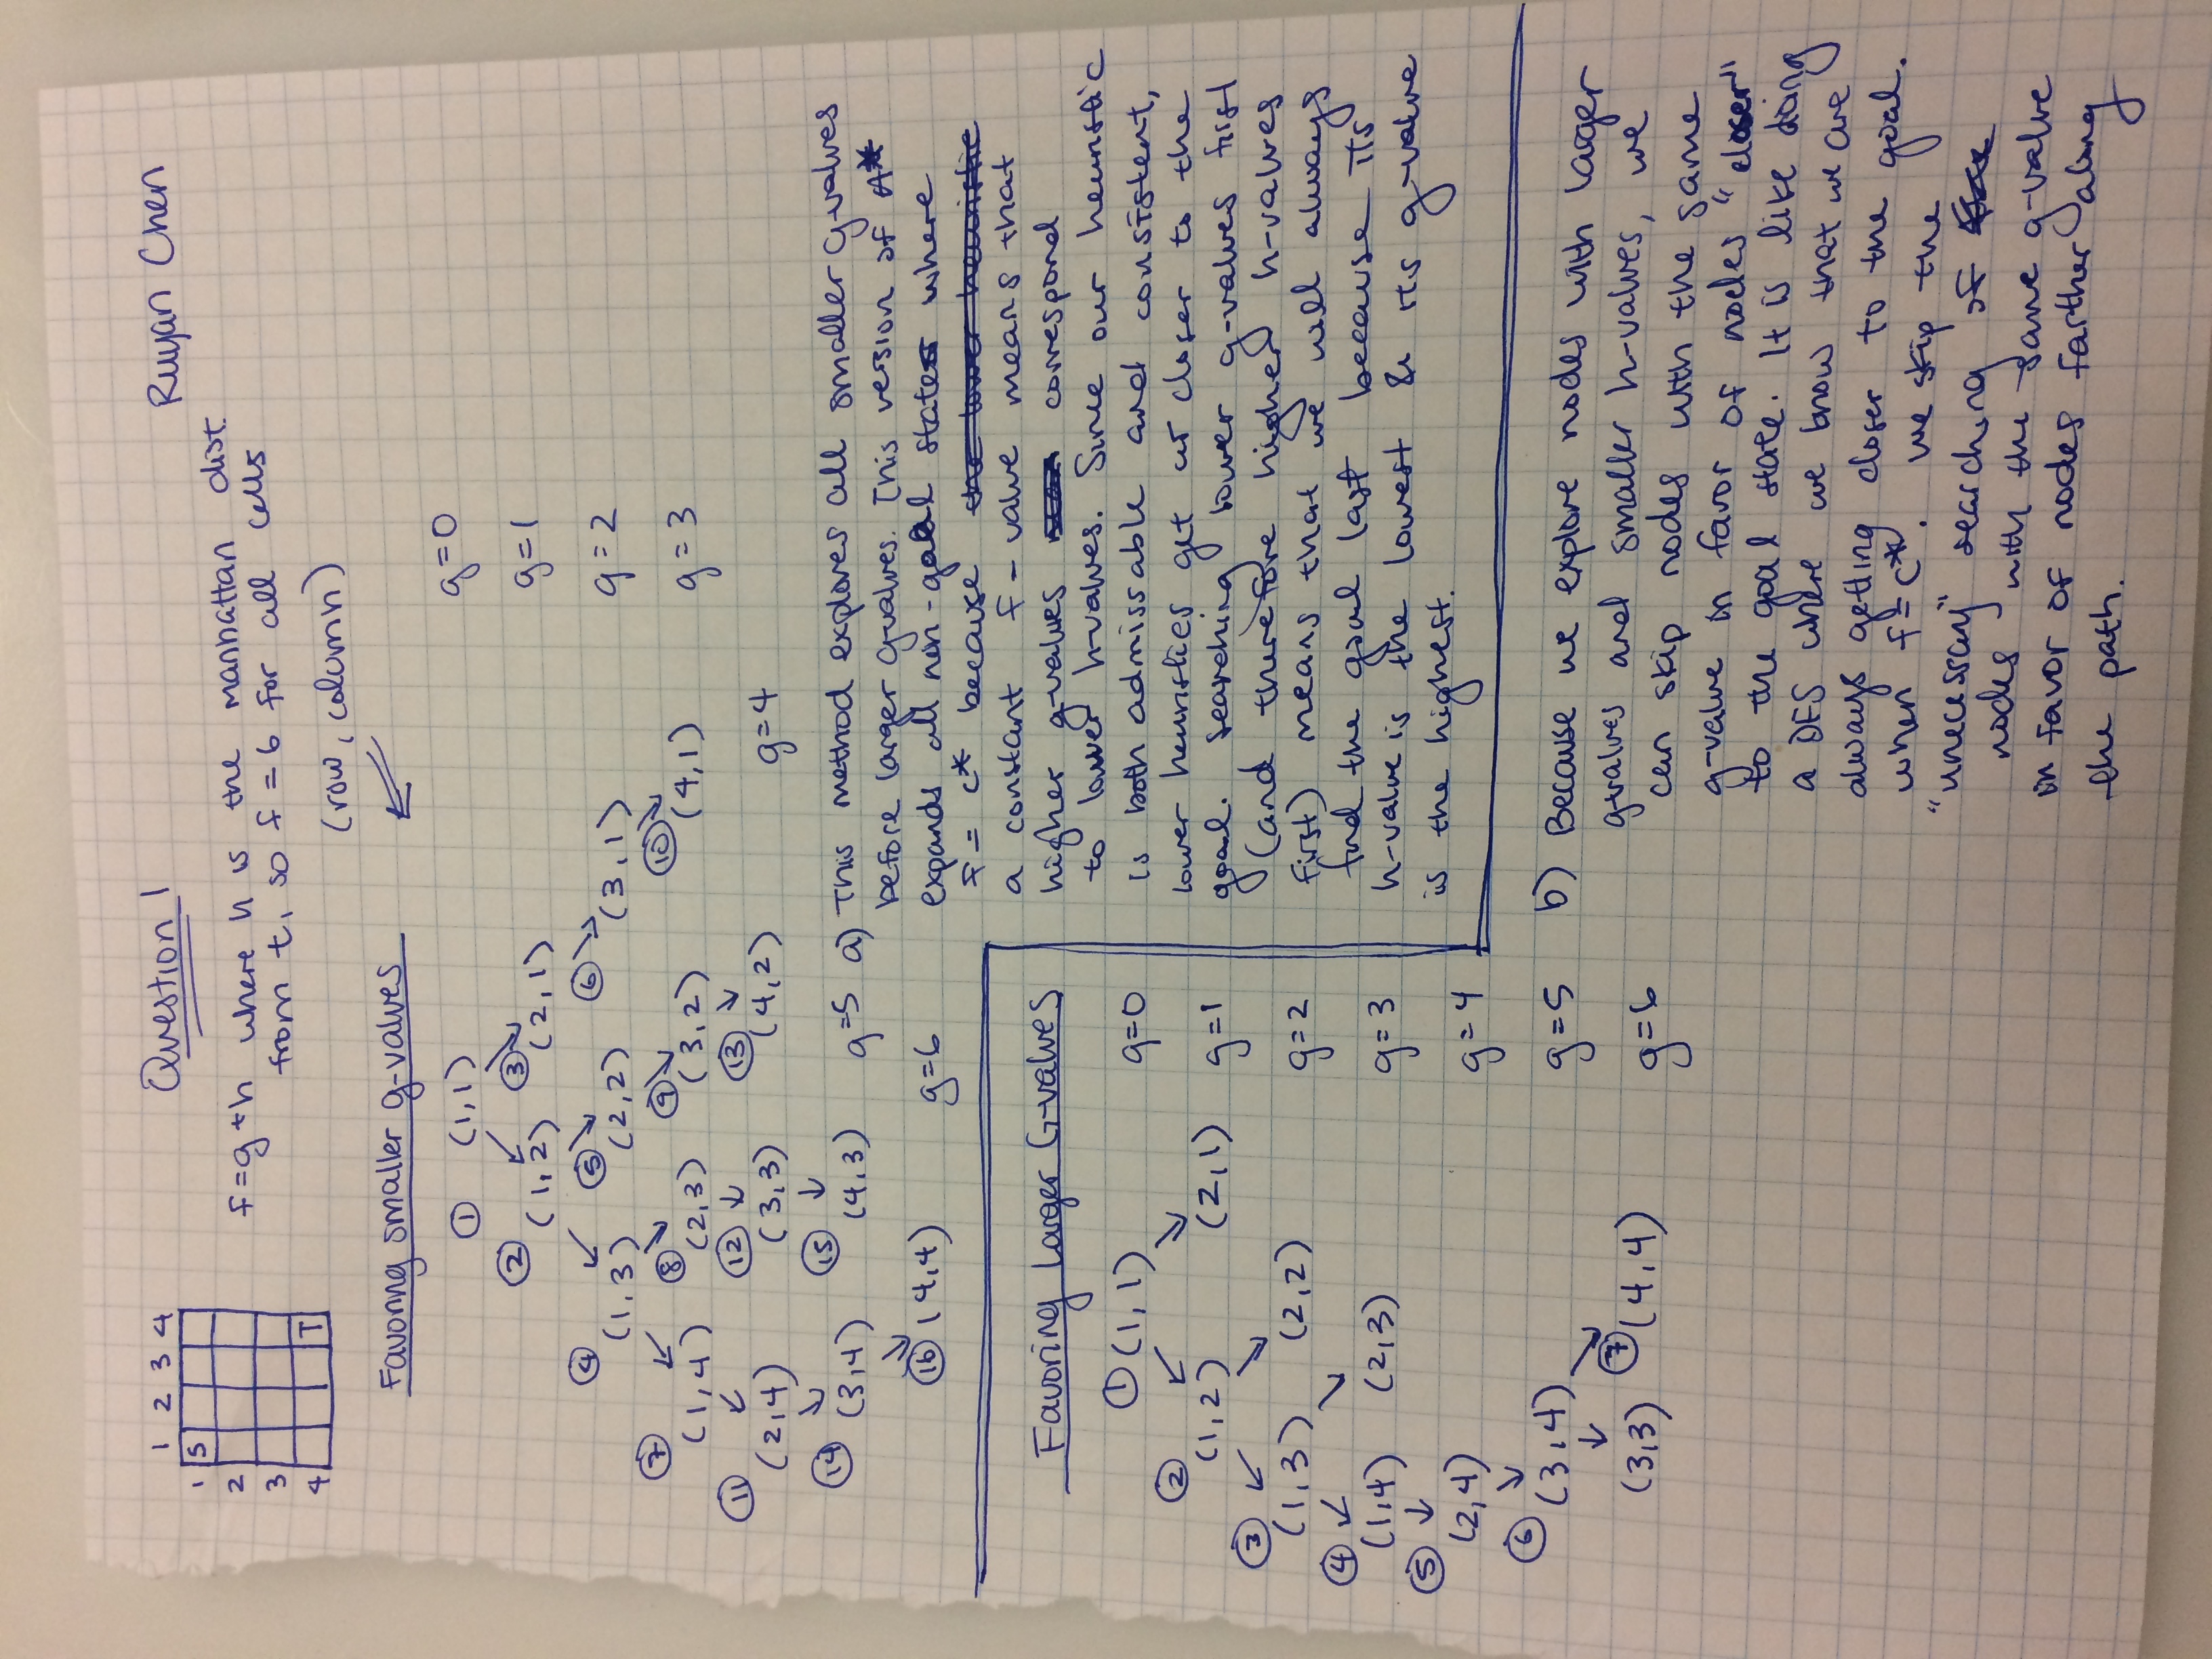 Question 1
Ruyan Chen
1 2 3 4
1 S
2
3
4 T
f=g+h where h is the manhattan dist.
from t, so f = 6 for all cells
(row, column)
Favoring smaller g-values
① (1,1) g=0
② ③
(1,2) (2,1) g=1
④ ⑤ ⑥
(1,3) (2,2) (3,1) g=2
⑦ ⑧ ⑨ ⑩
(1,4) (2,3) (3,2) (4,1) g=3
⑪ ⑫ ⑬
(2,4) (3,3) (4,2) g=4
⑭ ⑮
(3,4) (4,3) g=5
⑯ (4,4) g=6
a) This method explores all smaller g-values
before larger g-values. This version of A*
expands all non-goal states where
f = c* because the lower heuristic
a constant f-value means that
higher g-values correspond
to lower h-values. Since our heuristic
is both admissable and consistent,
lower heuristics get us closer to the
goal. Searching lower g-values first
(and therefore higher h-values
first) means that we will always
find the goal last because its
h-value is the lowest & its g-value
is the highest.
Favoring Larger G-values
① (1,1) g=0
②
(1,2) (2,1) g=1
③
(1,3) (2,2) g=2
④
(1,4) (2,3) g=3
⑤
(2,4) g=4
⑥
(3,4) g=5
(3,3) ⑦ (4,4) g=6
b) Because we explore nodes with larger
g-values and smaller h-values, we
can skip nodes with the same
g-value in favor of nodes "closer"
to the goal state. It is like doing
a DFS where we know that we are
always getting closer to the goal.
when f=c*. We skip the
"unecessary" searching of
nodes with the same g-value
in favor of nodes farther along
the path.